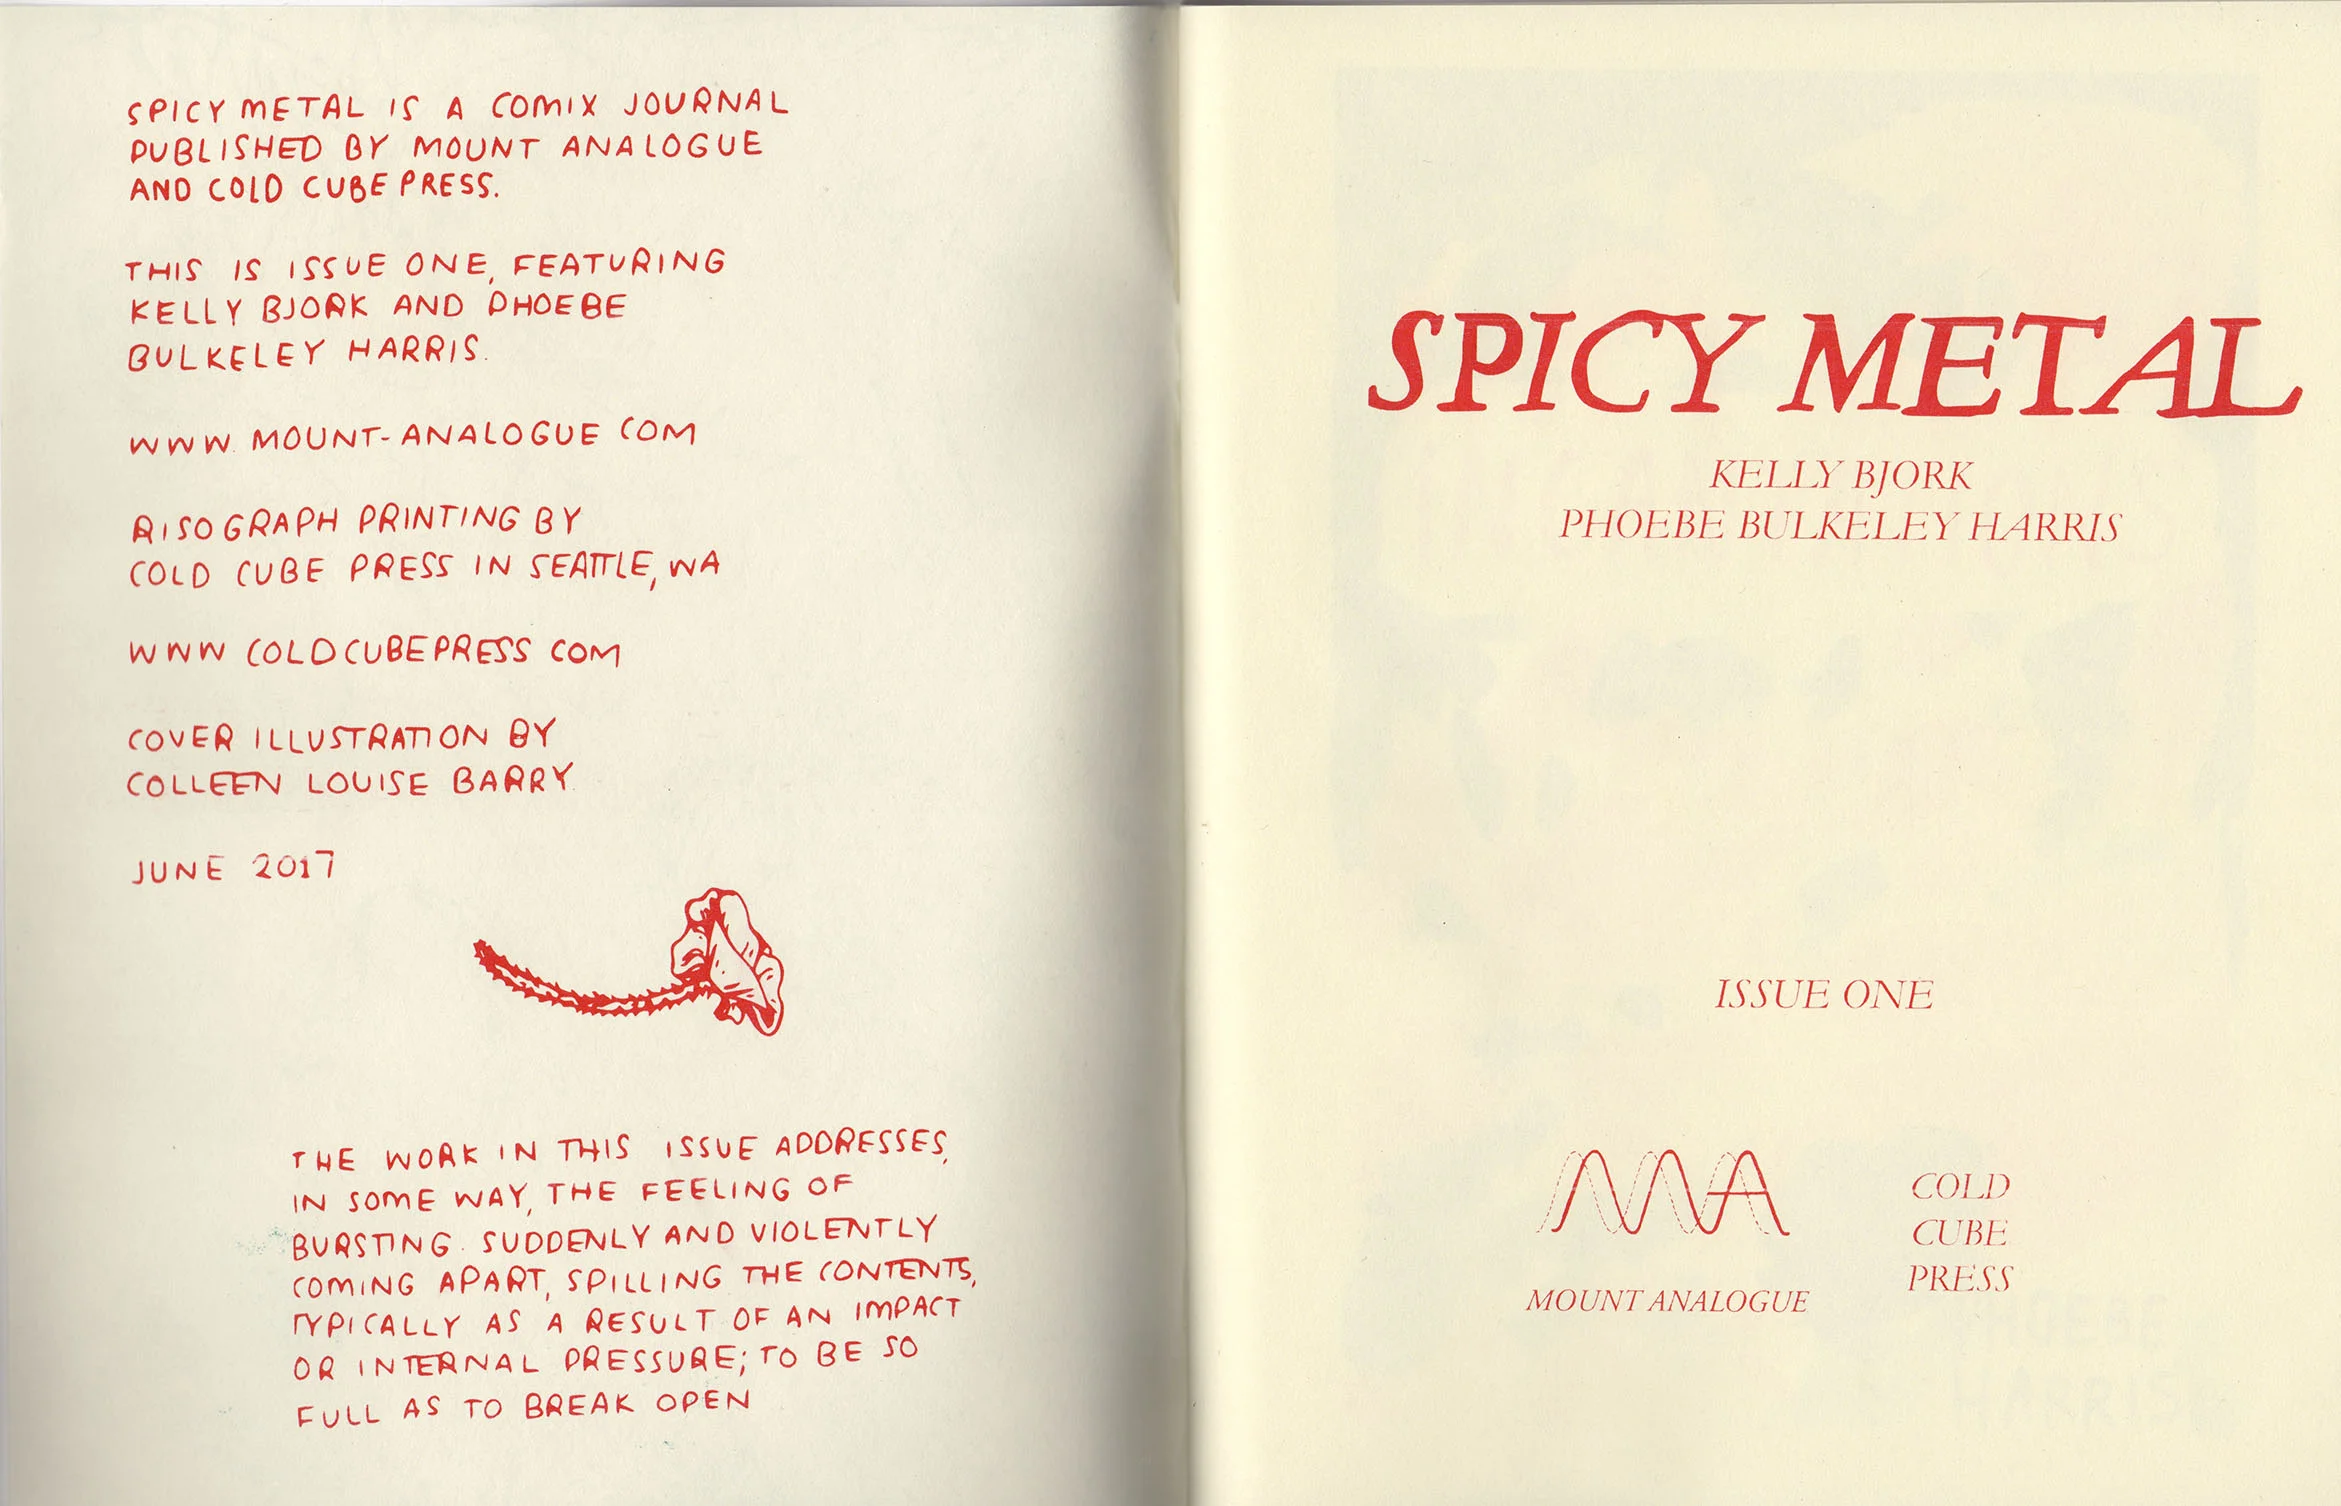 SPICY METAL IS A COMIX JOURNAL
PUBLISHED BY MOUNT ANALOGUE
AND COLD CUBE PRESS.
THIS IS ISSUE ONE, FEATURING
KELLY BJORK AND PHOEBE
BULKELEY HARRIS.
WWW. MOUNT-ANALOGUE COM
RISOGRAPH PRINTING BY
COLD CUBE PRESS IN SEATTLE, WA
WWW COLDCUBEPRESS COM
COVER ILLUSTRATION BY
COLLEEN LOUISE BARRY.
JUNE 2017
THE WORK IN THIS ISSUE ADDRESSES,
IN SOME WAY, THE FEELING OF
BURSTING. SUDDENLY AND VIOLENTLY
COMING APART, SPILLING THE CONTENTS,
TYPICALLY AS A RESULT OF AN IMPACT
OR INTERNAL PRESSURE; TO BE SO
FULL AS TO BREAK OPEN
SPICY METAL
KELLY BJORK
PHOEBE BULKELEY HARRIS
ISSUE ONE
MA
MOUNT ANALOGUE
COLD
CUBE
PRESS